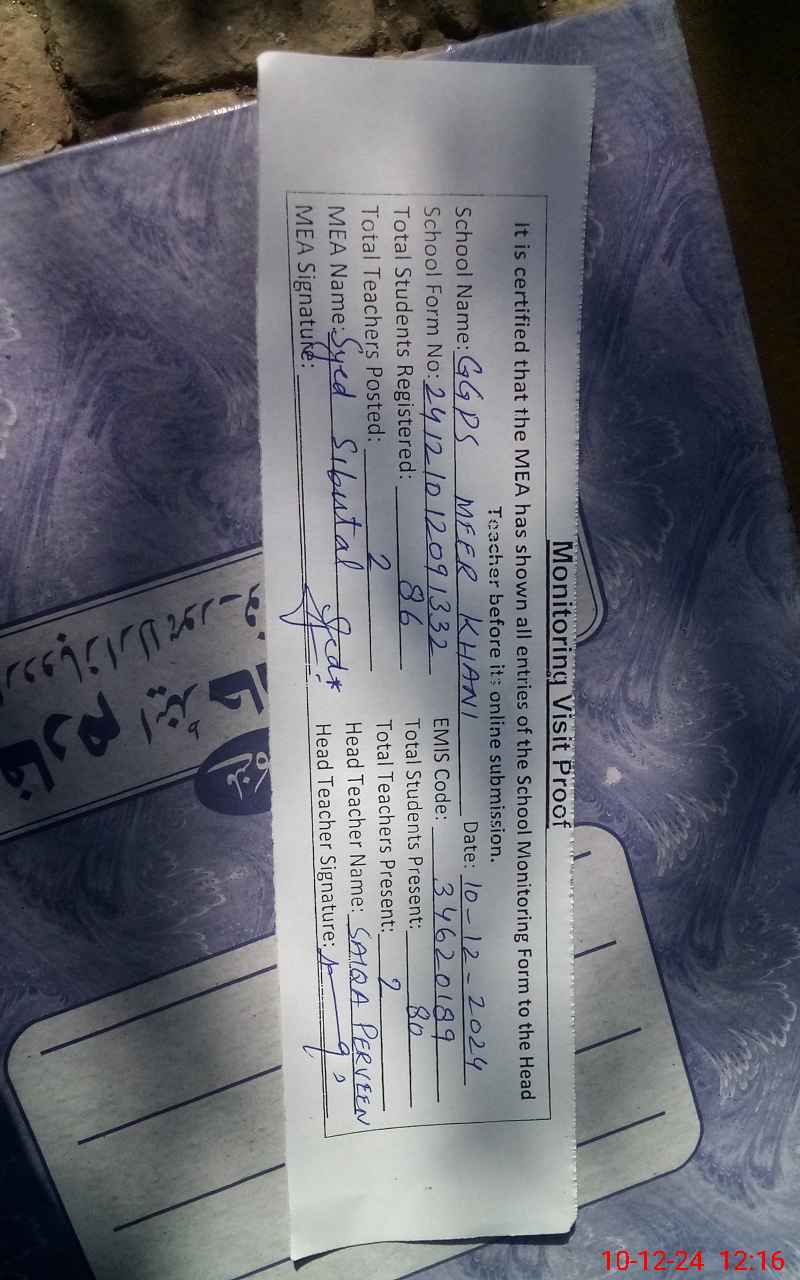 Monitoring Visit Proof
It is certified that the MEA has shown all entries of the School Monitoring Form to the Head
Teacher before its online submission.
School Name: GGPS MEER KHANI Date: 10-12-2024
School Form No: 24121012091332 EMIS Code: 34620189
Total Students Registered: 86 Total Students Present: 80
Total Teachers Posted: 2 Total Teachers Present: 2
MEA Name: Syed Head Teacher Name: SAIQA PERVEEN
MEA Signature: Head Teacher Signature:
10-12-24 12:16